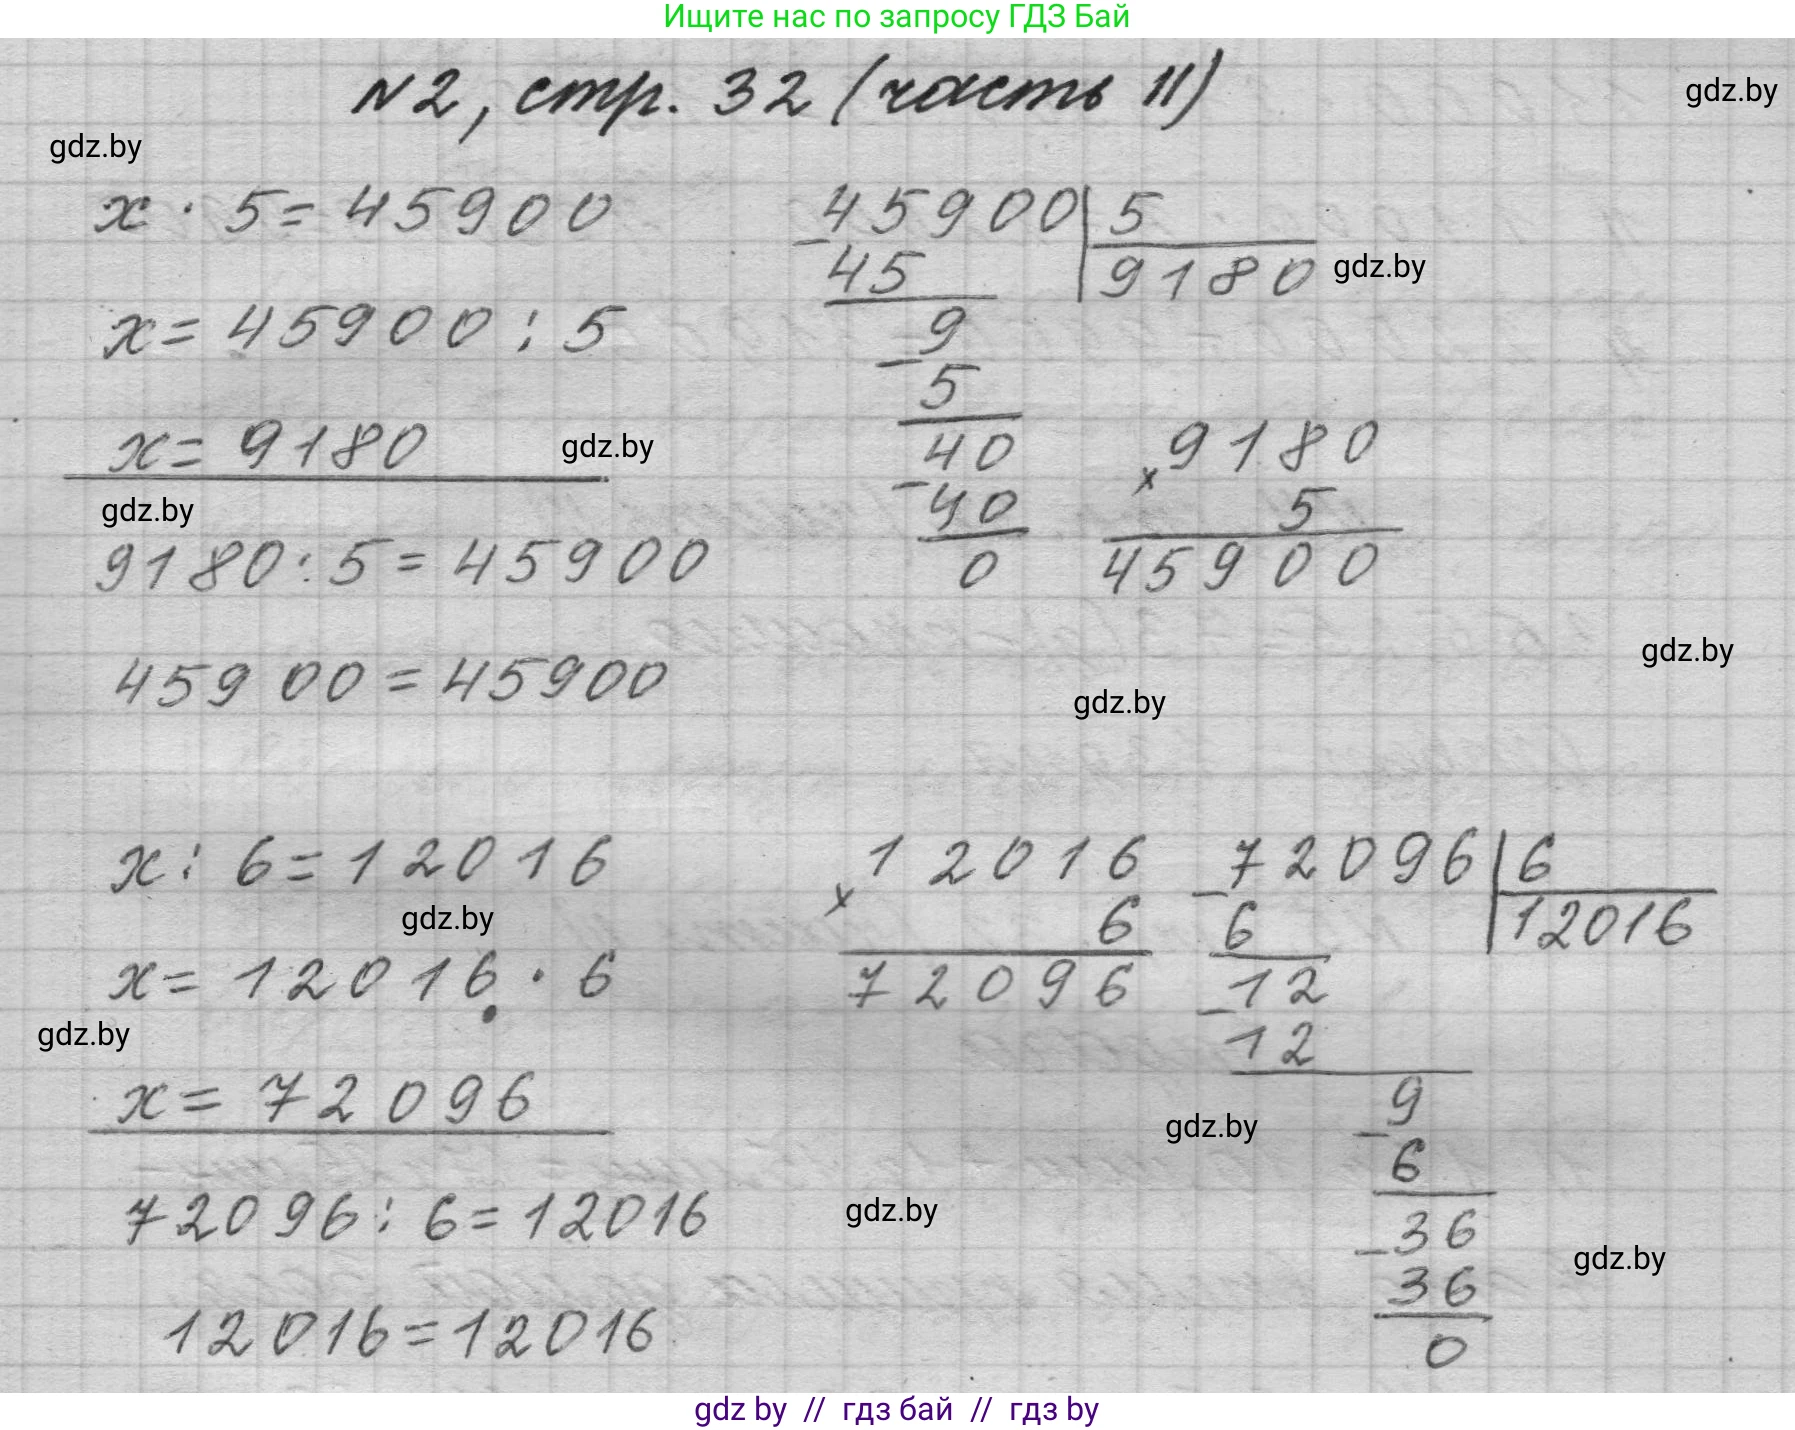 Ищите нас по запросу ГДЗ Бай
N2, стр. 32 (часть II)
gdz.by
gdz.by
x · 5 = 45900
x = 45900 : 5
x = 9180
gdz.by
gdz.by
9180 : 5 = 45900
45900 = 45900
45900 | 5
- 45
9180
gdz.by
9
- 5
40
- 40
0
9180
x 5
45900
gdz.by
gdz.by
x : 6 = 12016
gdz.by
x = 12016 · 6
gdz.by
x = 72096
72096 : 6 = 12016
12016 = 12016
12016
x 6
72096
72096 | 6
- 6
12016
12
- 12
9
- 6
36
- 36
0
gdz.by
gdz.by
gdz.by
gdz by // гдз бай // гдз by